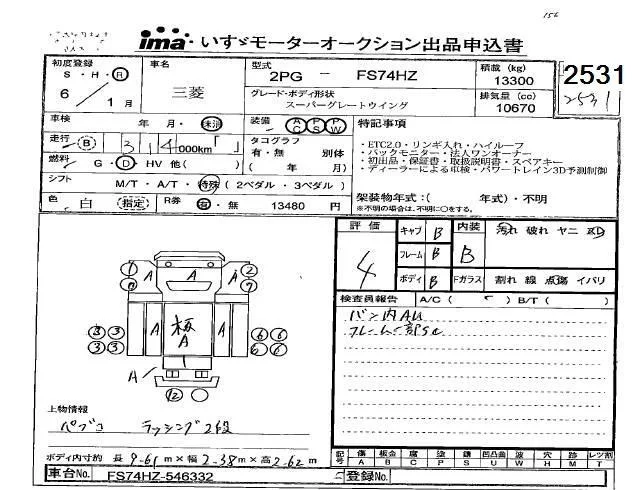 156
ima いすゞモーターオークション出品申込書
初度登録 S・H・R 6／1月
車名 三菱
型式 2PG － FS74HZ
グレード・ボディ形状 スーパーグレートウイング
積載(kg) 13300
排気量(cc) 10670
2531
2531
車検 年・月・未済
装備 AC PS PW
走行 (B) 314000km
タコグラフ 有・無 別体 (年 月)
燃料 G・D・HV 他( )
シフト M/T・A/T・特殊(2ペダル・3ペダル)
色 白 (指定) R券 有・無 13480円
特記事項
・ETC2.0・リンギ入れ・ハイルーフ
・バックモニター・法人ワンオーナー
・初出品・保証書・取扱説明書・スペアキー
・ディーラーによる車検・パワートレイン3D予測制御
架装物年式:( 年式)・不明
※不明の場合は、不明に○をする。
評価 4
キャブ B
フレーム B
ボディ B
内装 B
汚れ 破れ ヤニ
Fガラス 割れ 線 点傷 イバリ
検査員報告 A/C( ) B/T( )
バン内AU
フレーム一部S
A A A
A 板 A A
A
上物情報
パブコ ラッシング2段
ボディ内寸約 長 9.61m×幅 2.38m×高 2.62m
車台No. FS74HZ-546332
登録No.
記号 傷A 板金B 腐C 塗P 錆S 凹凸曲U 波W 穴H 跡M レツ割T